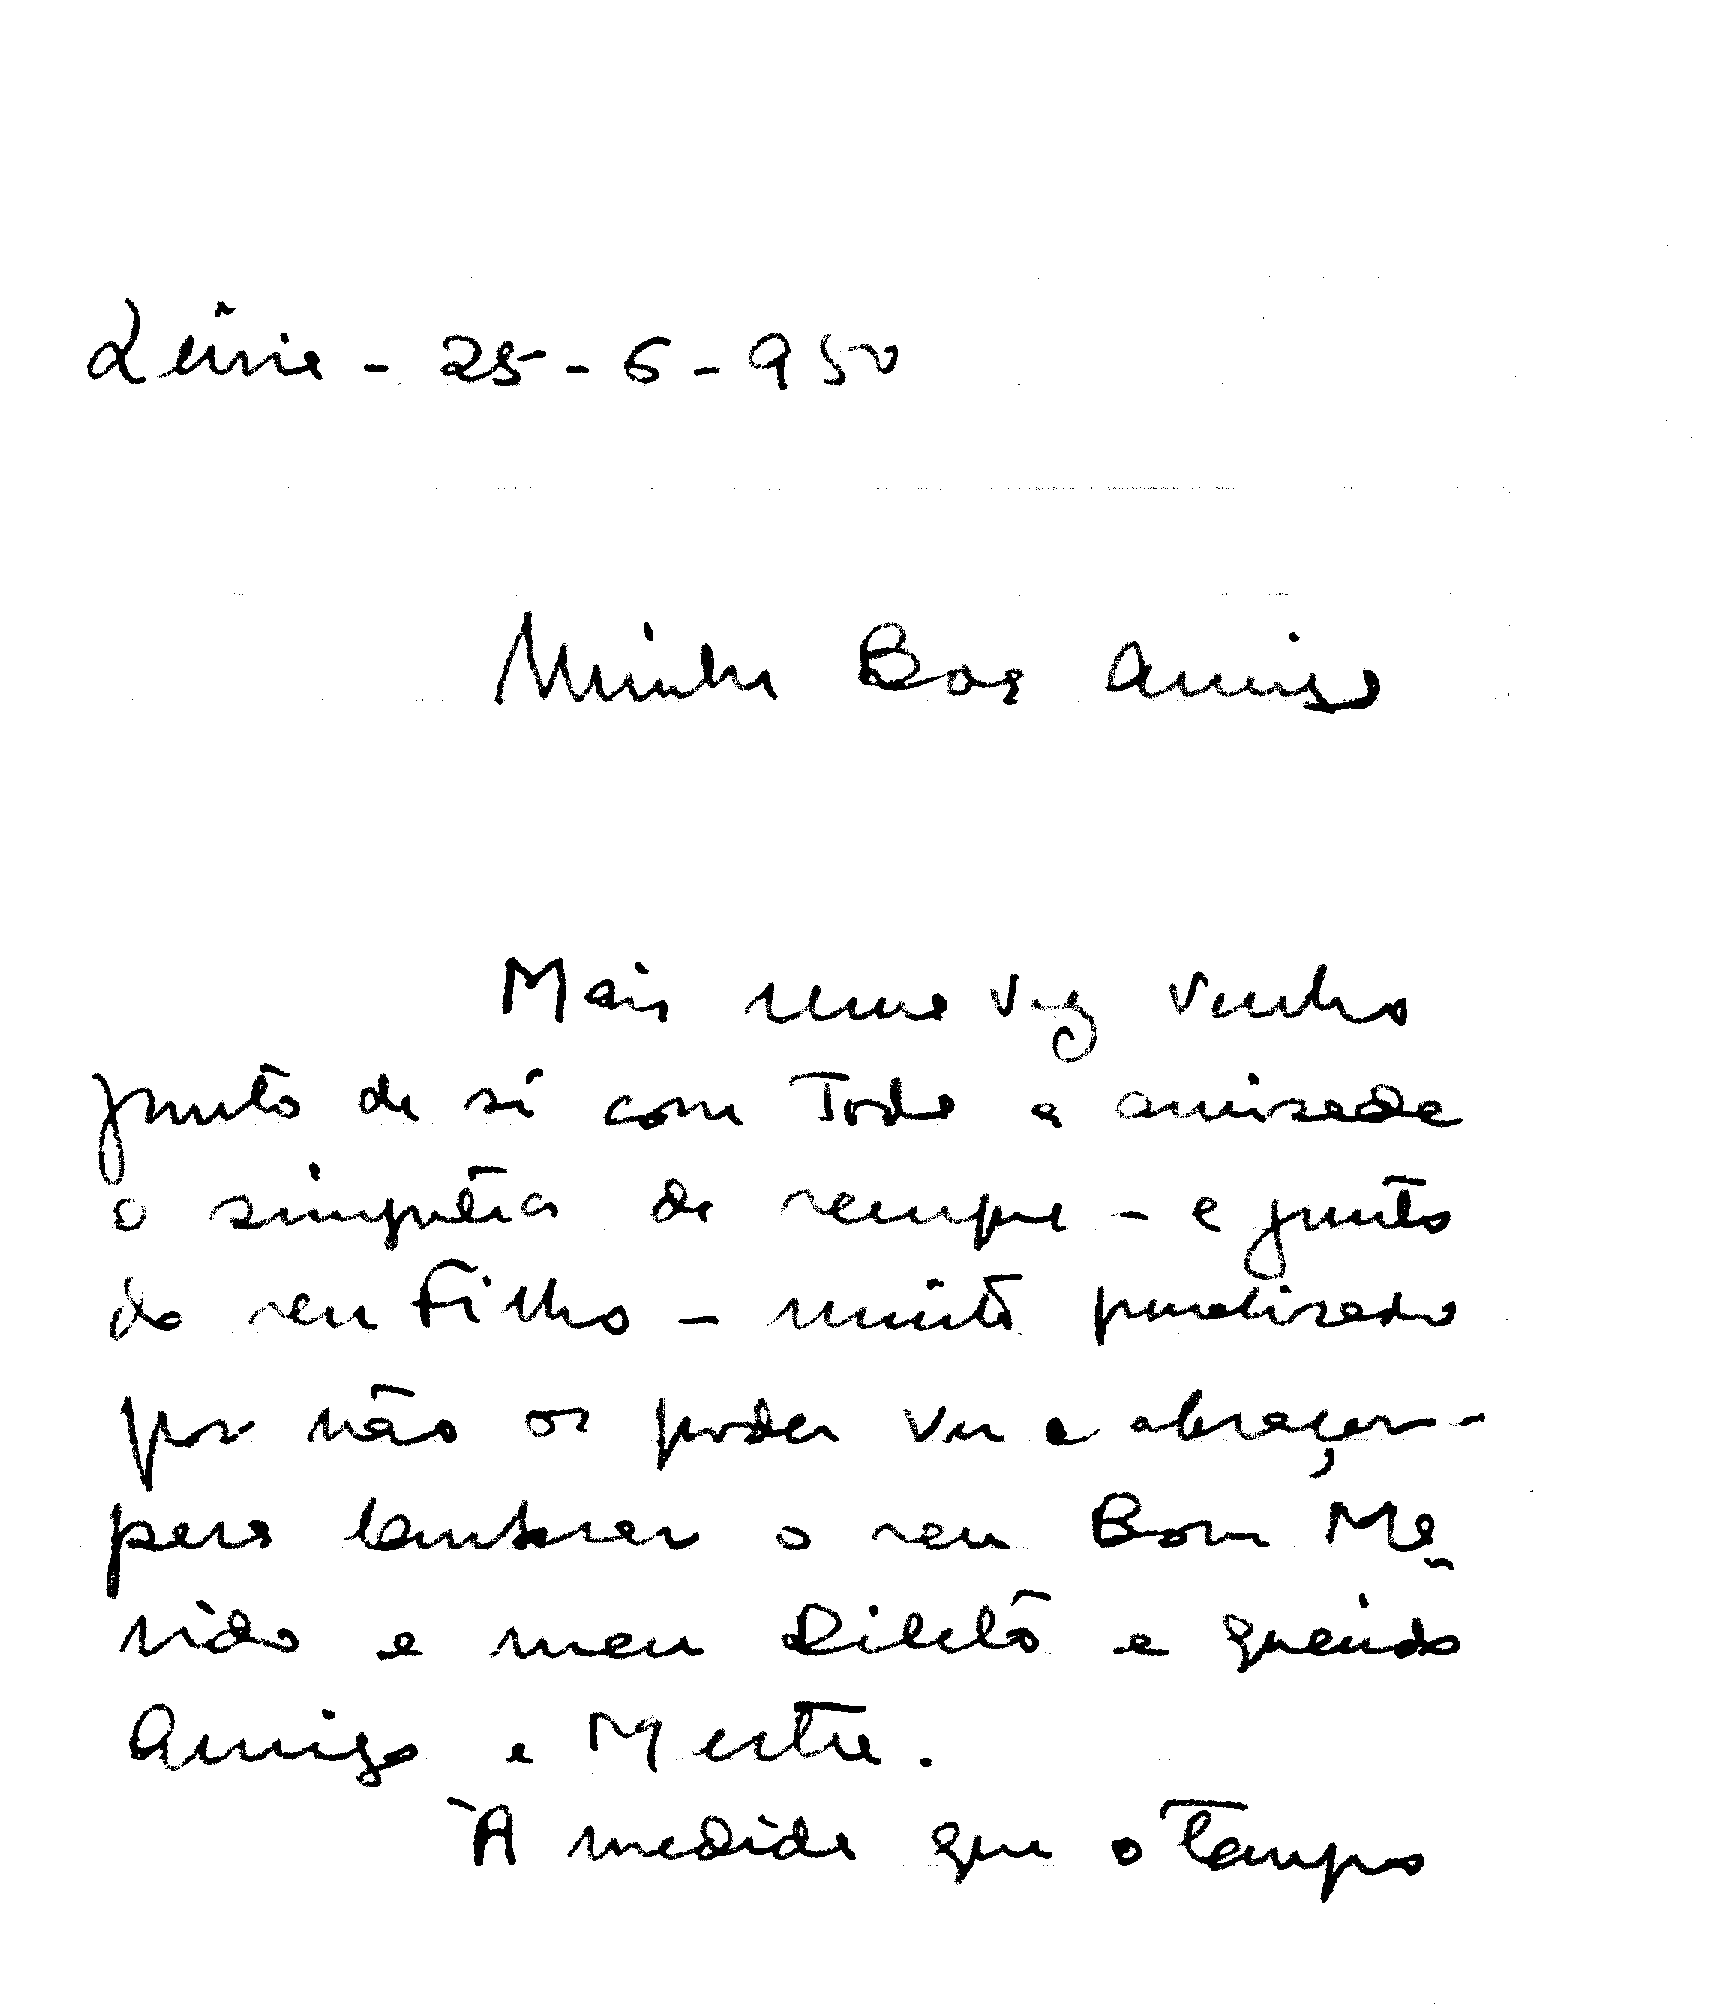 Leiria - 25 - 6 - 950
Minha Boa Amiga
Mais uma vez venho
junto de sí com Toda a amisade
e simpatia de sempre - e junto
do seu Filho - muito penalisado
por não os poder ver e abraçar -
para lembrar o seu Bom Ma-
rido e meu Dileto e querido
Amigo e Mestre.
À medida que o Tempo